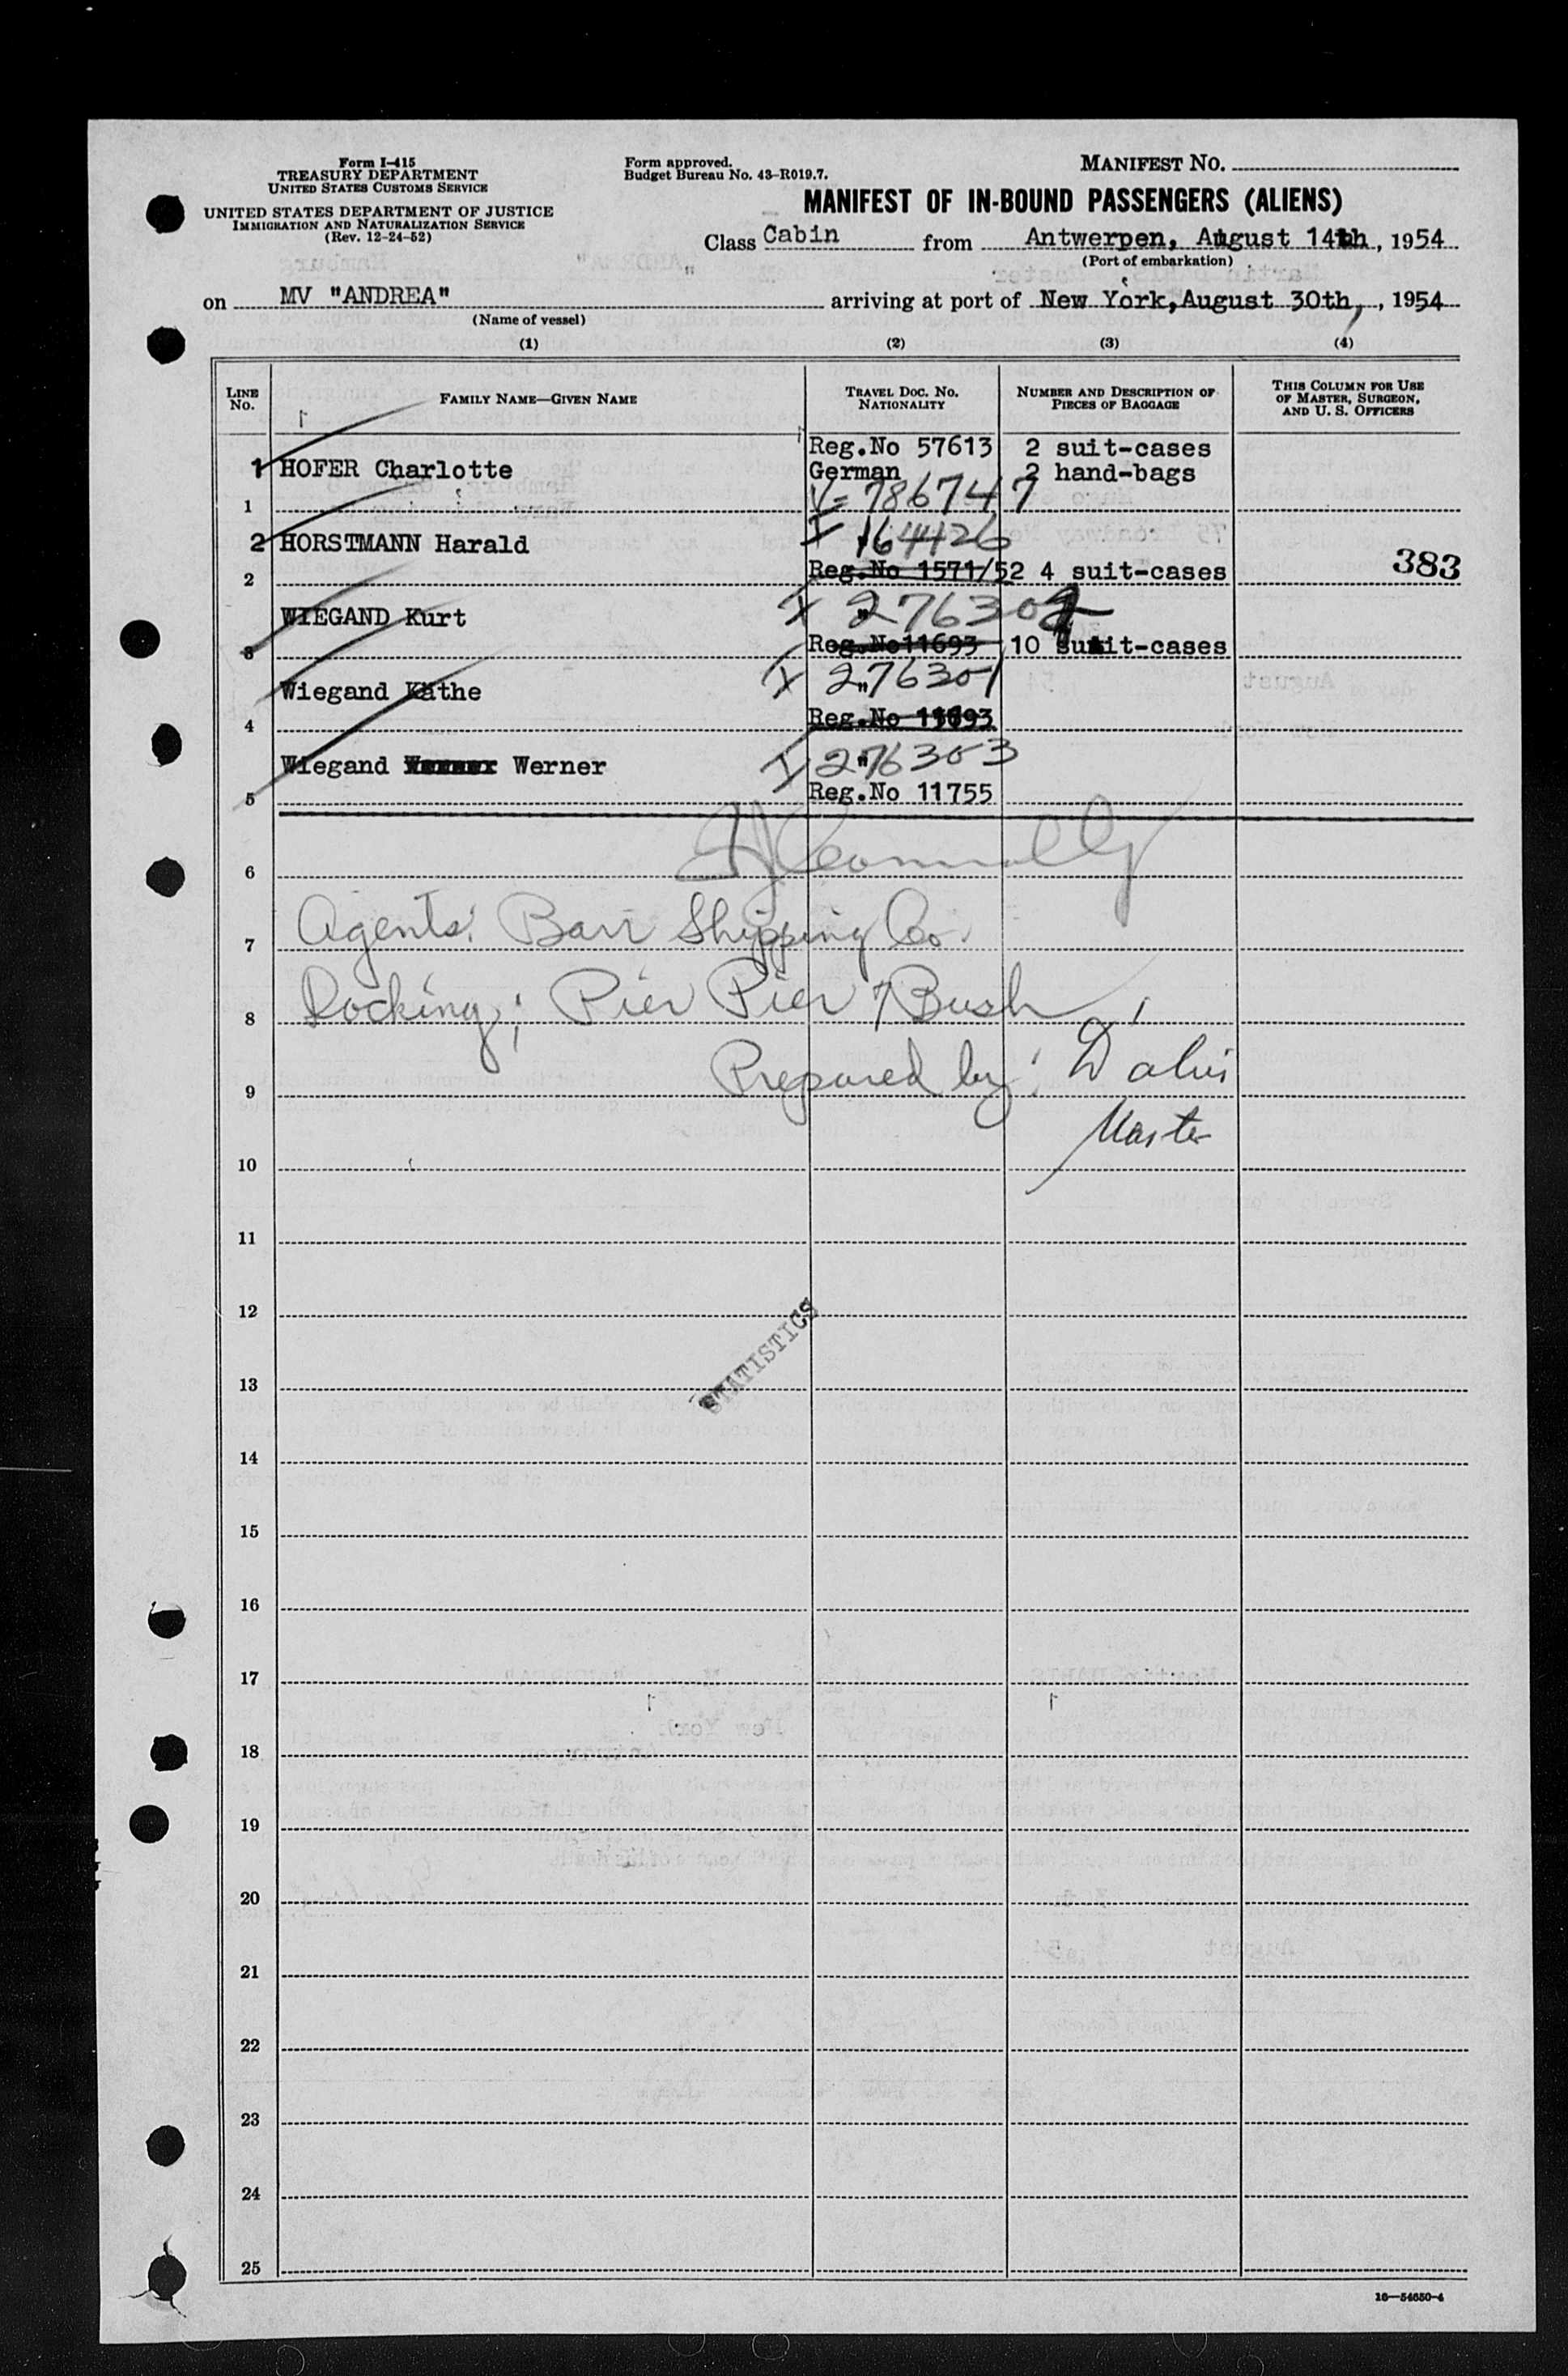 Form I-415
TREASURY DEPARTMENT
UNITED STATES CUSTOMS SERVICE
UNITED STATES DEPARTMENT OF JUSTICE
IMMIGRATION AND NATURALIZATION SERVICE
(Rev. 12-24-52)
Form approved.
Budget Bureau No. 43-R019.7.
MANIFEST NO.
MANIFEST OF IN-BOUND PASSENGERS (ALIENS)
Class Cabin from Antwerpen, August 14th, 1954
(Port of embarkation)
on MV "ANDREA" arriving at port of New York, August 30th, 1954
(Name of vessel)
(1) (2) (3) (4)
LINE NO.
FAMILY NAME—GIVEN NAME
TRAVEL DOC. NO. NATIONALITY
NUMBER AND DESCRIPTION OF PIECES OF BAGGAGE
THIS COLUMN FOR USE OF MASTER, SURGEON, AND U. S. OFFICERS
Reg.No 57613 2 suit-cases
1 HOFER Charlotte German 2 hand-bags
1 V= 7867447
2 HORSTMANN Harald I " 164126
2 Reg.No 1571/52 4 suit-cases 383
WIEGAND Kurt I " 276302
3 Reg.No11693 10 suit-cases
Wiegand Käthe I " 276301
4 Reg.No 11693
Wiegand Werner I " 276303
5 Reg.No 11755
6 Connolly
7 Agents: Barr Shipping Co.
8 Docking; Pier Pier 7 Bush
9 Prepared by:
Master
10
11
12
STATISTICS
13
14
15
16
17
18
19
20
21
22
23
24
25
16—54650-4